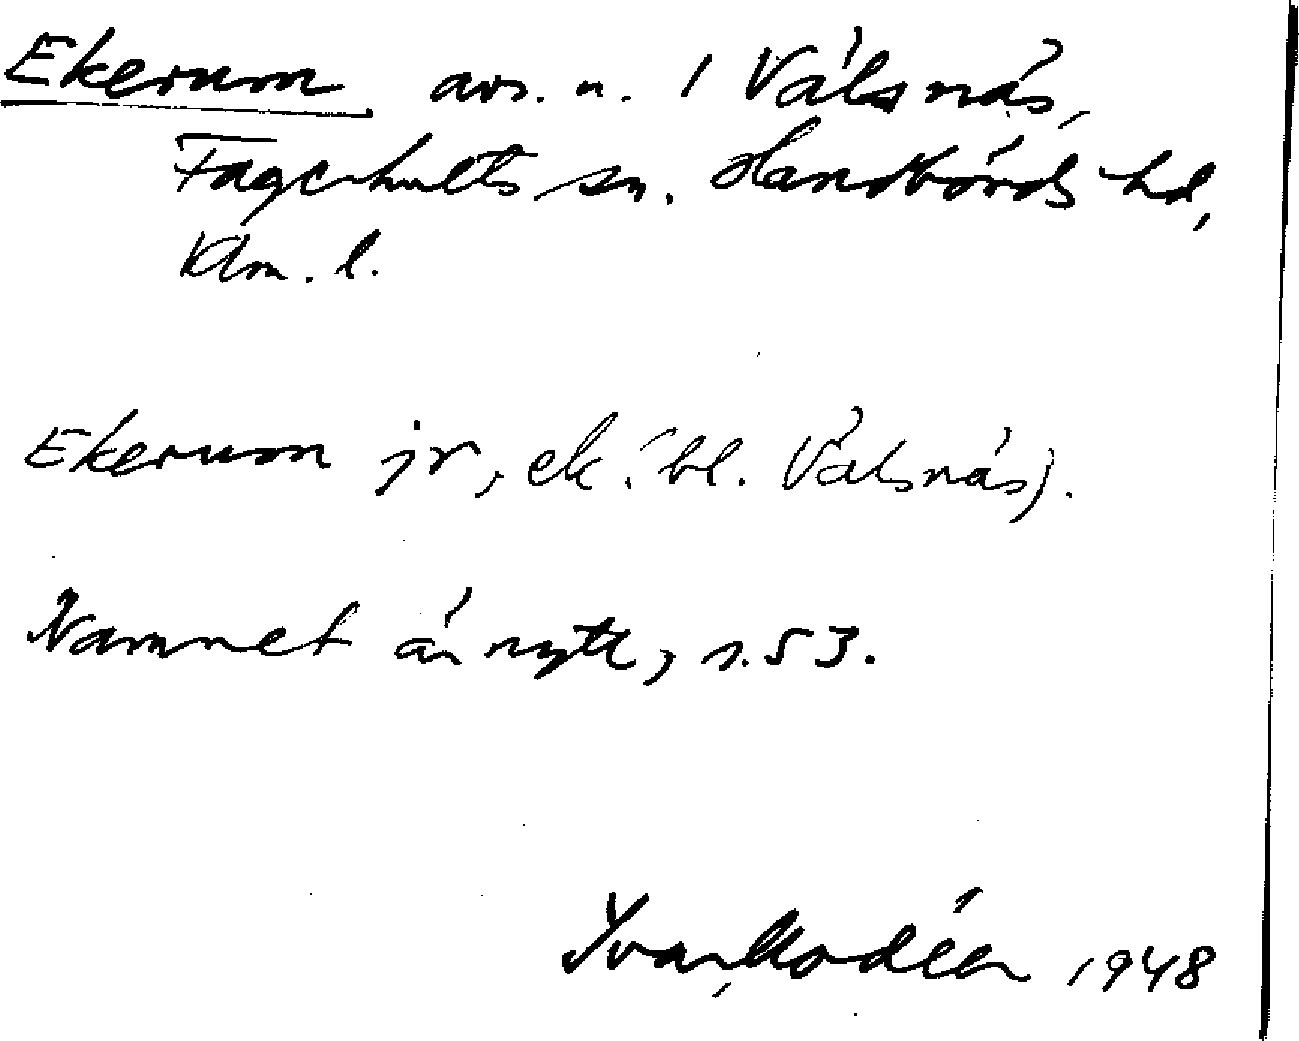 Ekerum avs. u. 1 Välsnäs,
Fagerhults sn. Handbörds hd,
Klm. l.
Ekerum jr, ek. (bl. Välsnäs).
Namnet är nytt, s. 53.
Ivar Modéer 1948